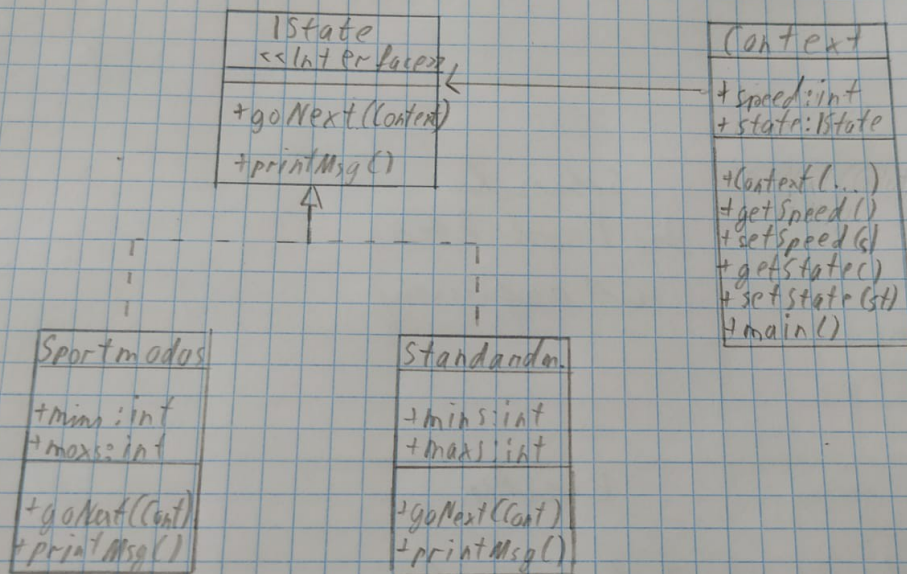 IState
<<Interface>>
+goNext(Context)
+printMsg()
Context
+speed:int
+state:IState
+Context(...)
+getSpeed()
+setSpeed(s)
+getState()
+setState(st)
+main()
Sportmodas
+mins:int
+maxs:int
+goNext(Cont)
+printMsg()
Standandm.
+mins:int
+maxs:int
+goNext(Cont)
+printMsg()